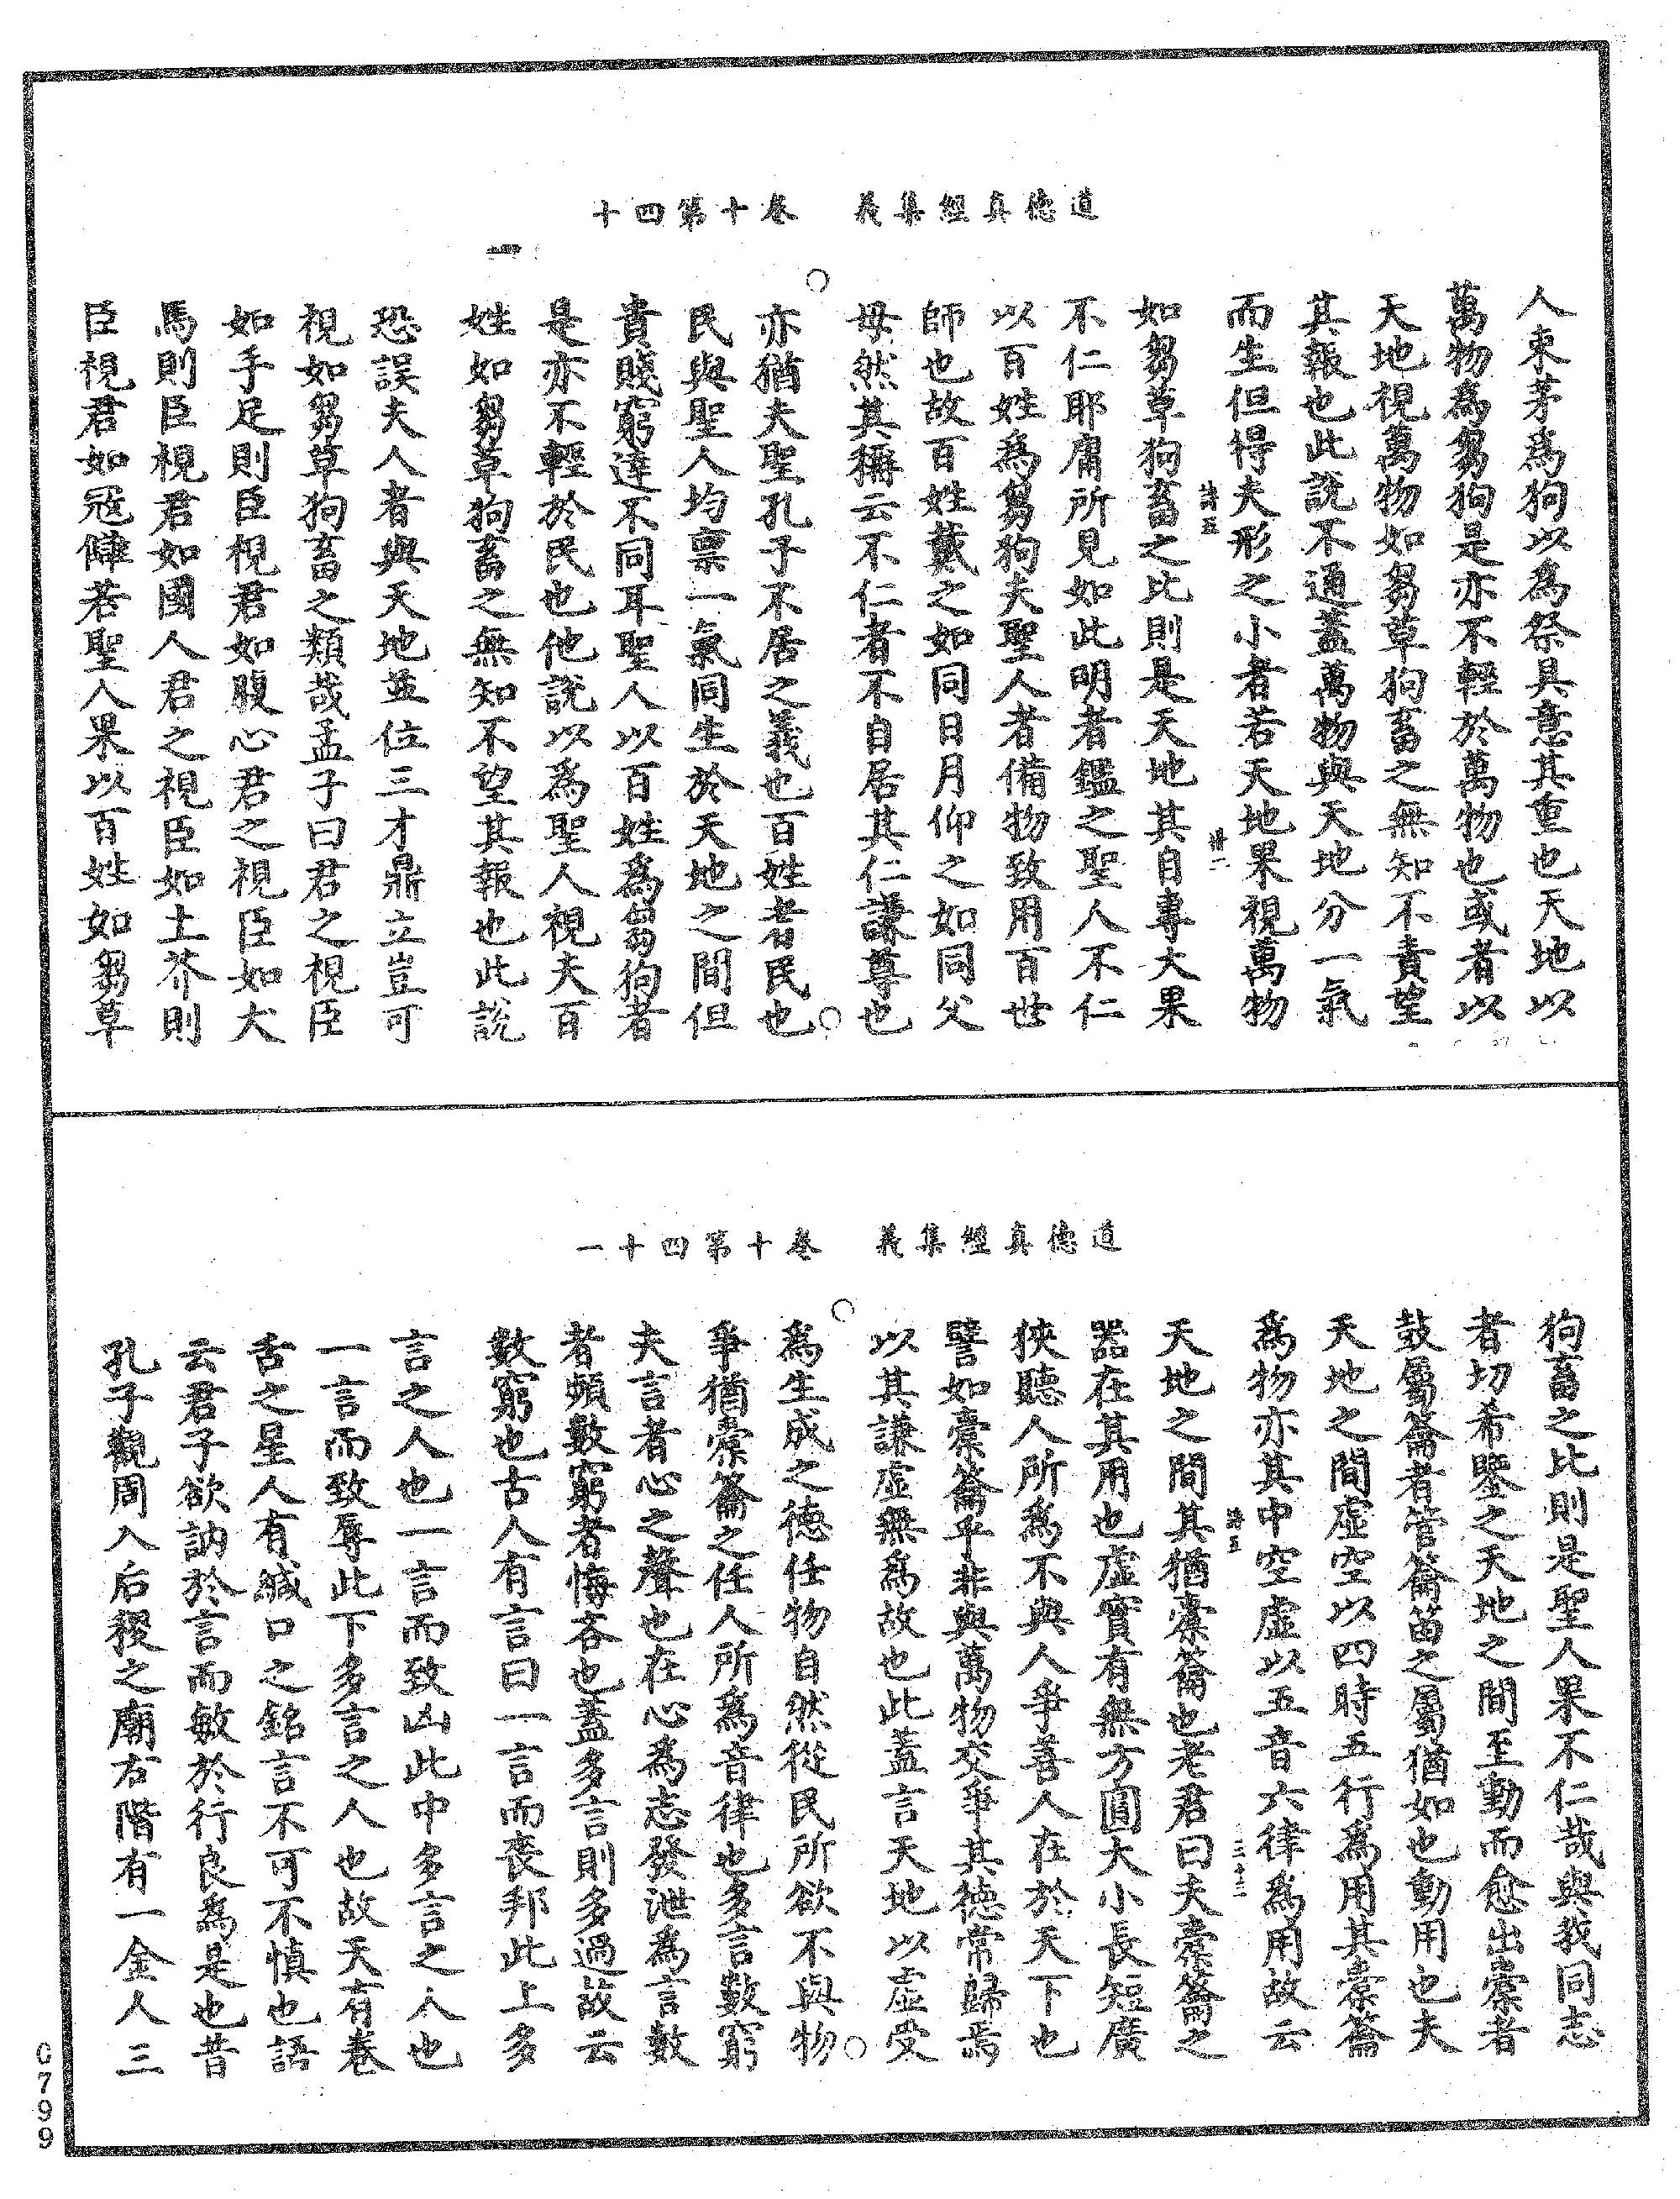 道德真經集義　卷十第四十
一
人束茅為狗以為祭具意其重也天地以
萬物為芻狗是亦不輕於萬物也或者以
天地視萬物如芻草狗畜之無知不責望
其報也此說不通蓋萬物與天地分一氣
而生但得夫形之小者若天地果視萬物
如芻草狗畜之比則是天地其自專大果
不仁耶庸所見如此明者鑑之聖人不仁
以百姓為芻狗夫聖人者備物致用百世
師也故百姓戴之如同日月仰之如同父
母然其稱云不仁者不自居其仁謙尊也
亦猶夫聖孔子不居之義也百姓者民也
民與聖人均禀一氣同生於天地之間但
貴賤窮達不同耳聖人以百姓為芻狗者
是亦不輕於民也他說以為聖人視夫百
姓如芻草狗畜之無知不望其報也此說
恐誤夫人者與天地並位三才鼎立豈可
視如芻草狗畜之類哉孟子曰君之視臣
如手足則臣視君如腹心君之視臣如犬
馬則臣視君如國人君之視臣如土芥則
臣視君如冦讎若聖人果以百姓如芻草
道德真經集義　卷十第四十一
狗畜之比則是聖人果不仁哉與我同志
者切希鑒之天地之間至動而愈出槖者
鼓屬籥者管籥笛之屬猶如也動用也夫
天地之間虛空以四時五行為用其槖籥
為物亦其中空虛以五音六律為用故云
天地之間其猶槖籥也老君曰夫槖籥之
器在其用也虛實有無方圓大小長短廣
狹聽人所為不與人爭善人在於天下也
譬如槖籥乎非與萬物交爭其德常歸焉
以其謙虛無為故也此蓋言天地以虛受
為生成之德任物自然從民所欲不與物
爭猶槖籥之任人所為音律也多言數窮
夫言者心之聲也在心為志發泄為言數
者頻數窮者悔吝也蓋多言則多過故云
數窮也古人有言曰一言而喪邦此上多
言之人也一言而致凶此中多言之人也
一言而致辱此下多言之人也故天有卷
舌之星人有緘口之銘言不可不慎也語
云君子欲訥於言而敏於行良為是也昔
孔子觀周入后稷之廟右階有一金人三
C799